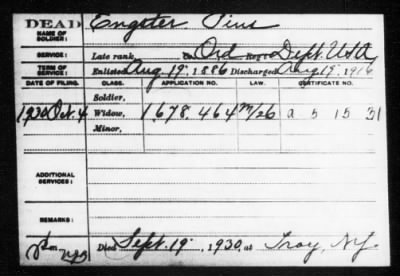 DEAD Engster Pius
NAME OF SOLDIER:
SERVICE: Late rank, Co. Ord Reg't Dept. U.S.A.
TERM OF SERVICE: Enlisted Aug. 19, 1886 Discharged Aug 19, 1916
DATE OF FILING. CLASS. APPLICATION NO. LAW. CERTIFICATE NO.
Soldier,
1930 Oct. 4 Widow, 1,678,464 26 a 5 15 31
Minor,
ADDITIONAL SERVICES:
REMARKS:
Died Sept. 19, 1930, at Troy, N.Y.